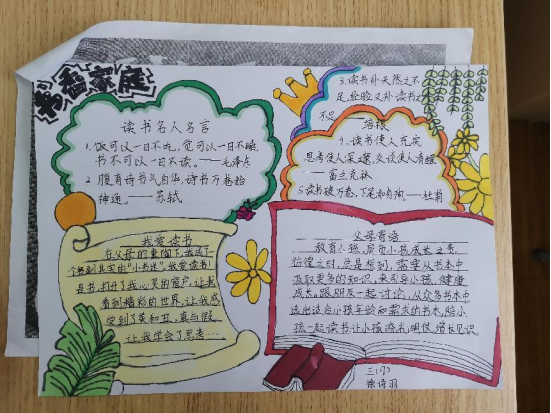 书香家庭
读书名人名言
1.饭可以一日不吃,觉可以一日不睡
书不可以一日不读。——毛泽东
2.腹有诗书气自华,读书万卷始
神通。——苏轼
3.读书补天然之不
足,经验又补读书之
不足——培根
4.读书使人充实
思考使人深邃,交谈使人清醒
——富兰克林
5.读书破万卷,下笔如有神。——杜甫
我爱读书
在父母的熏陶下,我成了
一个名副其实的“小书迷”。我爱读书!
是书,打开了我心灵的窗户,让我
看到精彩的世界,让我感
受到了美和丑,真与假
让我学会了思考……
父母寄语
教育小孩,
之时,总是想到,需要从书本中
汲取更多的知识,来引导小孩,健康
成长。跟朋友一起讨论,从众多书本中
选出适合小孩年龄和需求的书本,陪小
孩一起读书让小孩 明悟,增长见识。
三(7)
徐诗羽